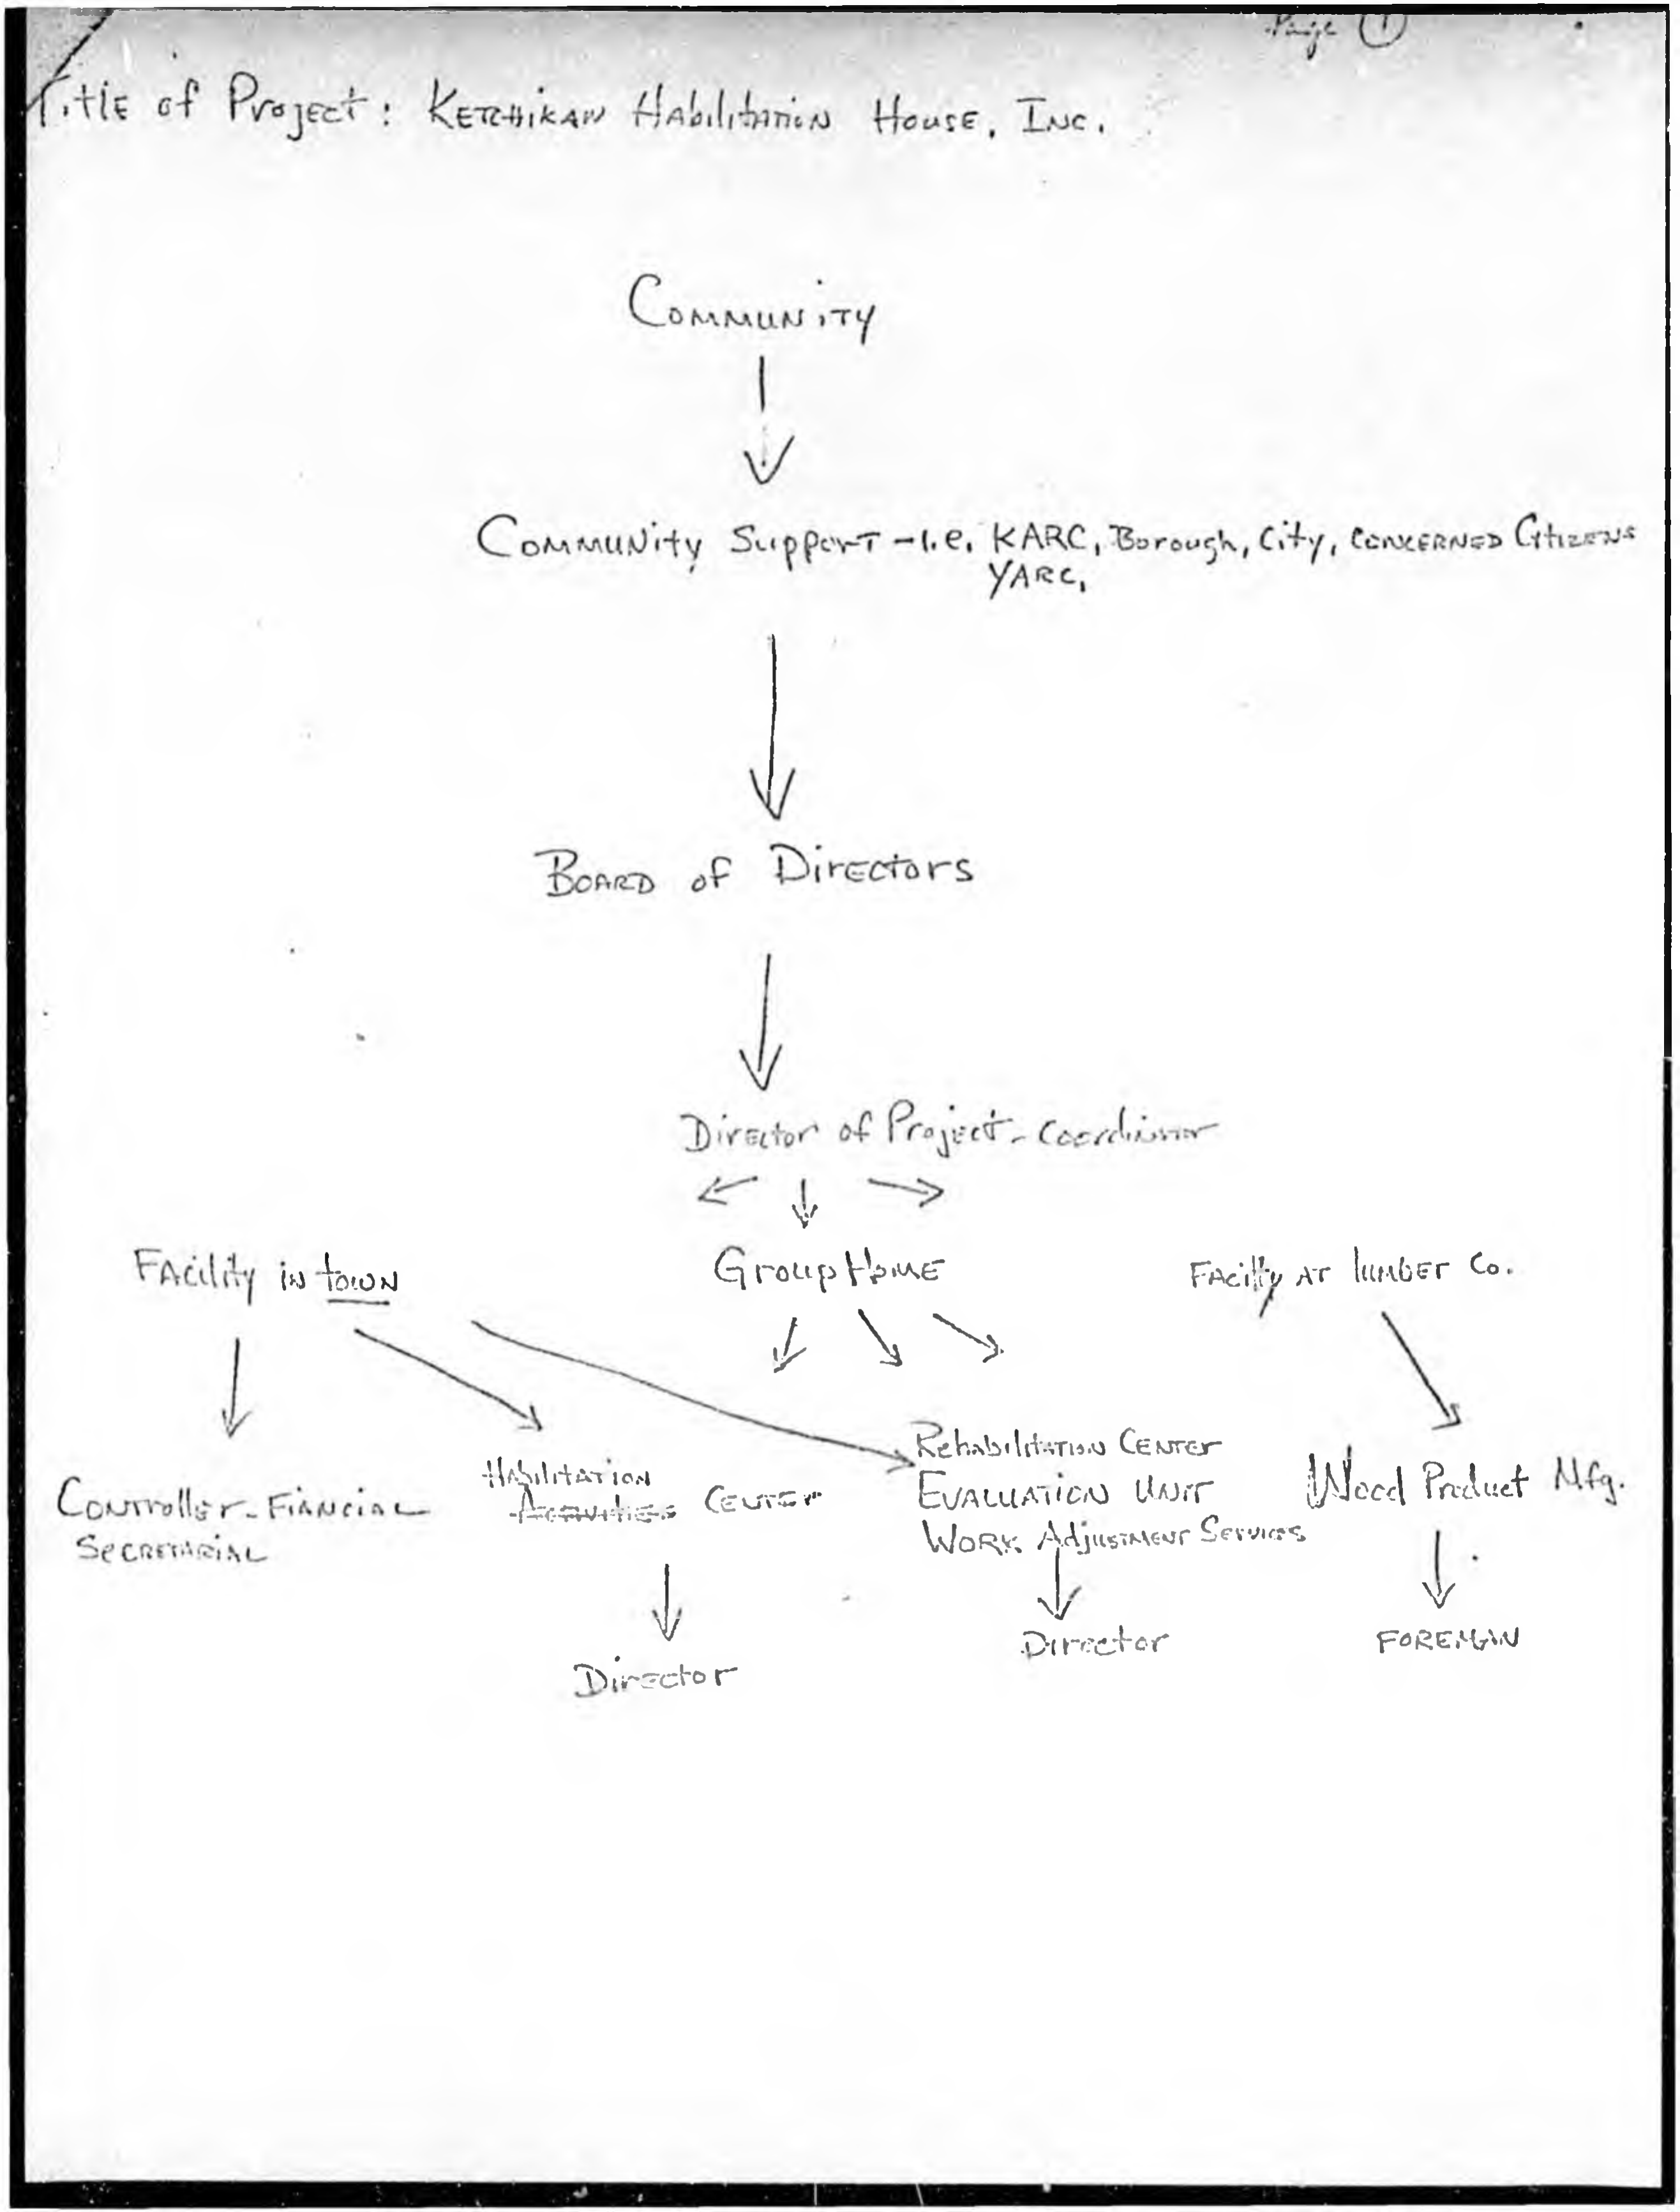 Page 1
Title of Project: Ketchikan Habilitation House, Inc.
Community
Community Support - i.e. KARC, Borough, City, Concerned Citizens
YARC,
Board of Directors
Director of Project - Coordinator
Facility in town
Group Home
Facilty at lumber Co.
Controller - Fiancial
Secretarial
Habilitation
Activities Center
Rehabilitation Center
Evaluation Unit
Work Adjustment Services
Wood Product Mfg.
Director
Director
Foreman